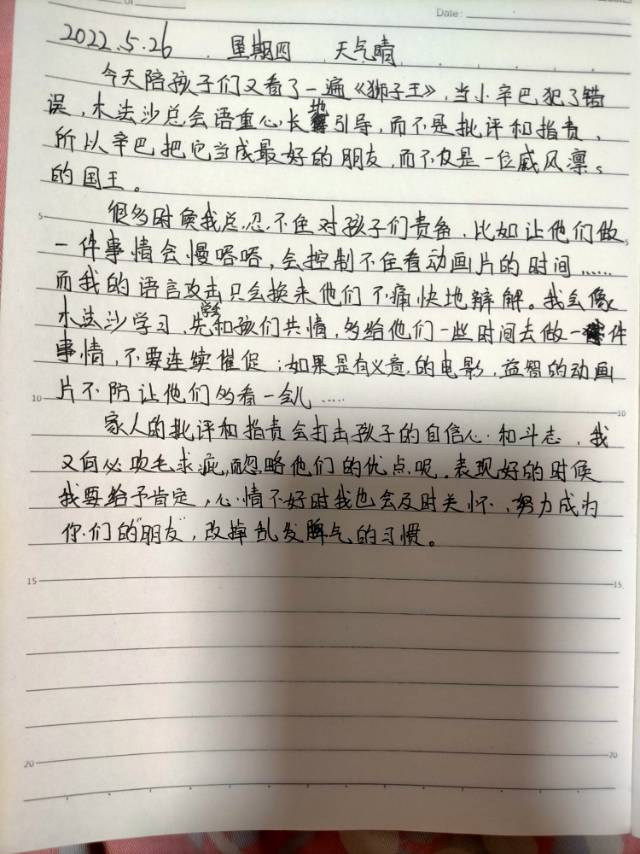 Date:
2022.5.26 星期四 天气晴
今天陪孩子们又看了一遍《狮子王》,当小辛巴犯了错
误,木法沙总会语重心长地引导,而不是批评和指责,
所以辛巴把它当成最好的朋友,而不仅是一位威风凛
的国王。
很多时候我总忍不住对孩子们责备,比如让他们做
一件事情会慢嗒嗒,会控制不住看动画片的时间……
而我的语言攻击只会换来他们不痛快地辩解。我会像
木法沙学习,先和孩们共情,多给他们一些时间去做一件
事情,不要连续催促;如果是有义意的电影,益智的动画
片不防让他们多看一会儿……
家人的批评和指责会打击孩子的自信心和斗志,我
又何必吹毛求疵,而忽略他们的优点呢。表现好的时候
我要给予肯定,心情不好时我也会及时关怀,努力成为
你们的"朋友",改掉乱发脾气的习惯。
5
10
10
15
15
20
20